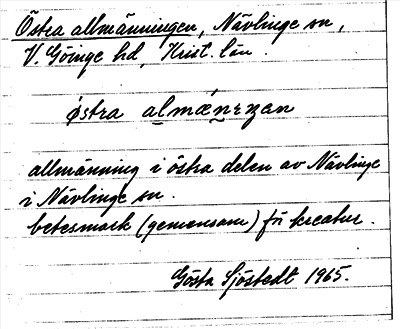 Östra allmänningen, Nävlinge sn,
V. Göinge hd, Krist. län.
östra almæniŋen
allmänning i östra delen av Nävlinge
i Nävlinge sn.
betesmark (gemensam) för kreatur.
Gösta Sjöstedt 1965.